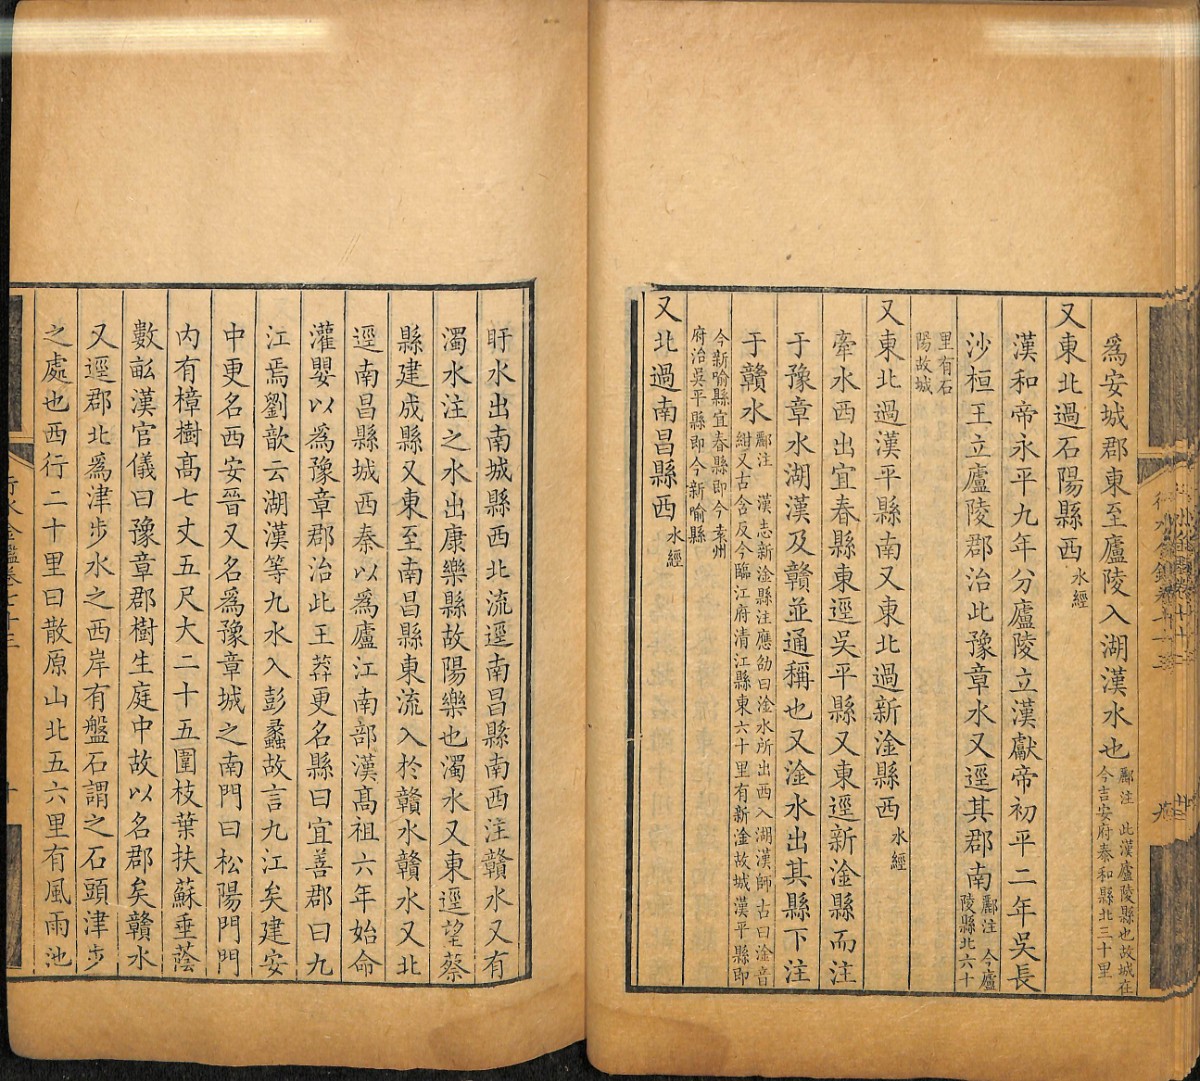 爲安城郡東至廬陵入湖漢水也 酈注 此漢廬陵縣也故城在今吉安府泰和縣北三十里
又東北過石陽縣西 水經
漢和帝永平九年分廬陵立漢獻帝初平二年吳長
沙桓王立廬陵郡治此豫章水又逕其郡南 酈注 今廬陵縣北六十
里有石陽故城
又東北過漢平縣南又東北過新淦縣西 水經
牽水西出宜春縣東逕吳平縣又東逕新淦縣而注
于豫章水湖漢及贛並通稱也又淦水出其縣下注
于贛水 酈注 漢志新淦縣注應劭曰淦水所出西入湖漢師古曰淦音紺又古含反今臨江府清江縣東六十里有新淦故城漢平縣即
今新喻縣宜春縣即今袁州府治吳平縣即今新喻縣
又北過南昌縣西 水經
盱水出南城縣西北流逕南昌縣南西注贛水又有
濁水注之水出康樂縣故陽樂也濁水又東逕望蔡
縣建成縣又東至南昌縣東流入於贛水贛水又北
逕南昌縣城西秦以爲廬江南部漢髙祖六年始命
灌嬰以爲豫章郡治此王莽更名縣曰宜善郡曰九
江焉劉歆云湖漢等九水入彭蠡故言九江矣建安
中更名西安晉又名爲豫章城之南門曰松陽門門
内有樟樹髙七丈五尺大二十五圍枝葉扶蘇垂蔭
數畝漢官儀曰豫章郡樹生庭中故以名郡矣贛水
又逕郡北爲津步水之西岸有盤石謂之石頭津步
之處也西行二十里曰散原山北五六里有風雨池